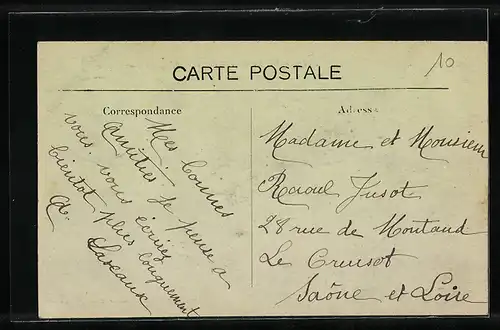 10
CARTE POSTALE
Correspondance
Mes bonnes
amitiés. Je pense a
vous. vous écrirez
bientot plus longuement
A. Lascaux
Adresse
Madame et Monsieur
Raoul Jusot
28 rue de Moutand
Le Creusot
Saône et Loire